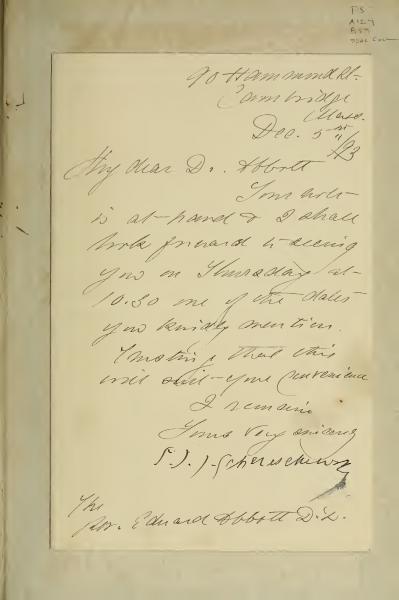 90 Hammond St.
Cambridge
Mass.
Dec. 5th /93
My dear Dr. Abbott
Your note
is at hand & I shall
look forward to seeing
you on Thursday at
10.30 one of the dates
you kindly mention.
Trusting that this
will suit your convenience
I remain
Yours very sincerely
S. I. J. Schereschewsky
The
Rev. Edward Abbott D.D.